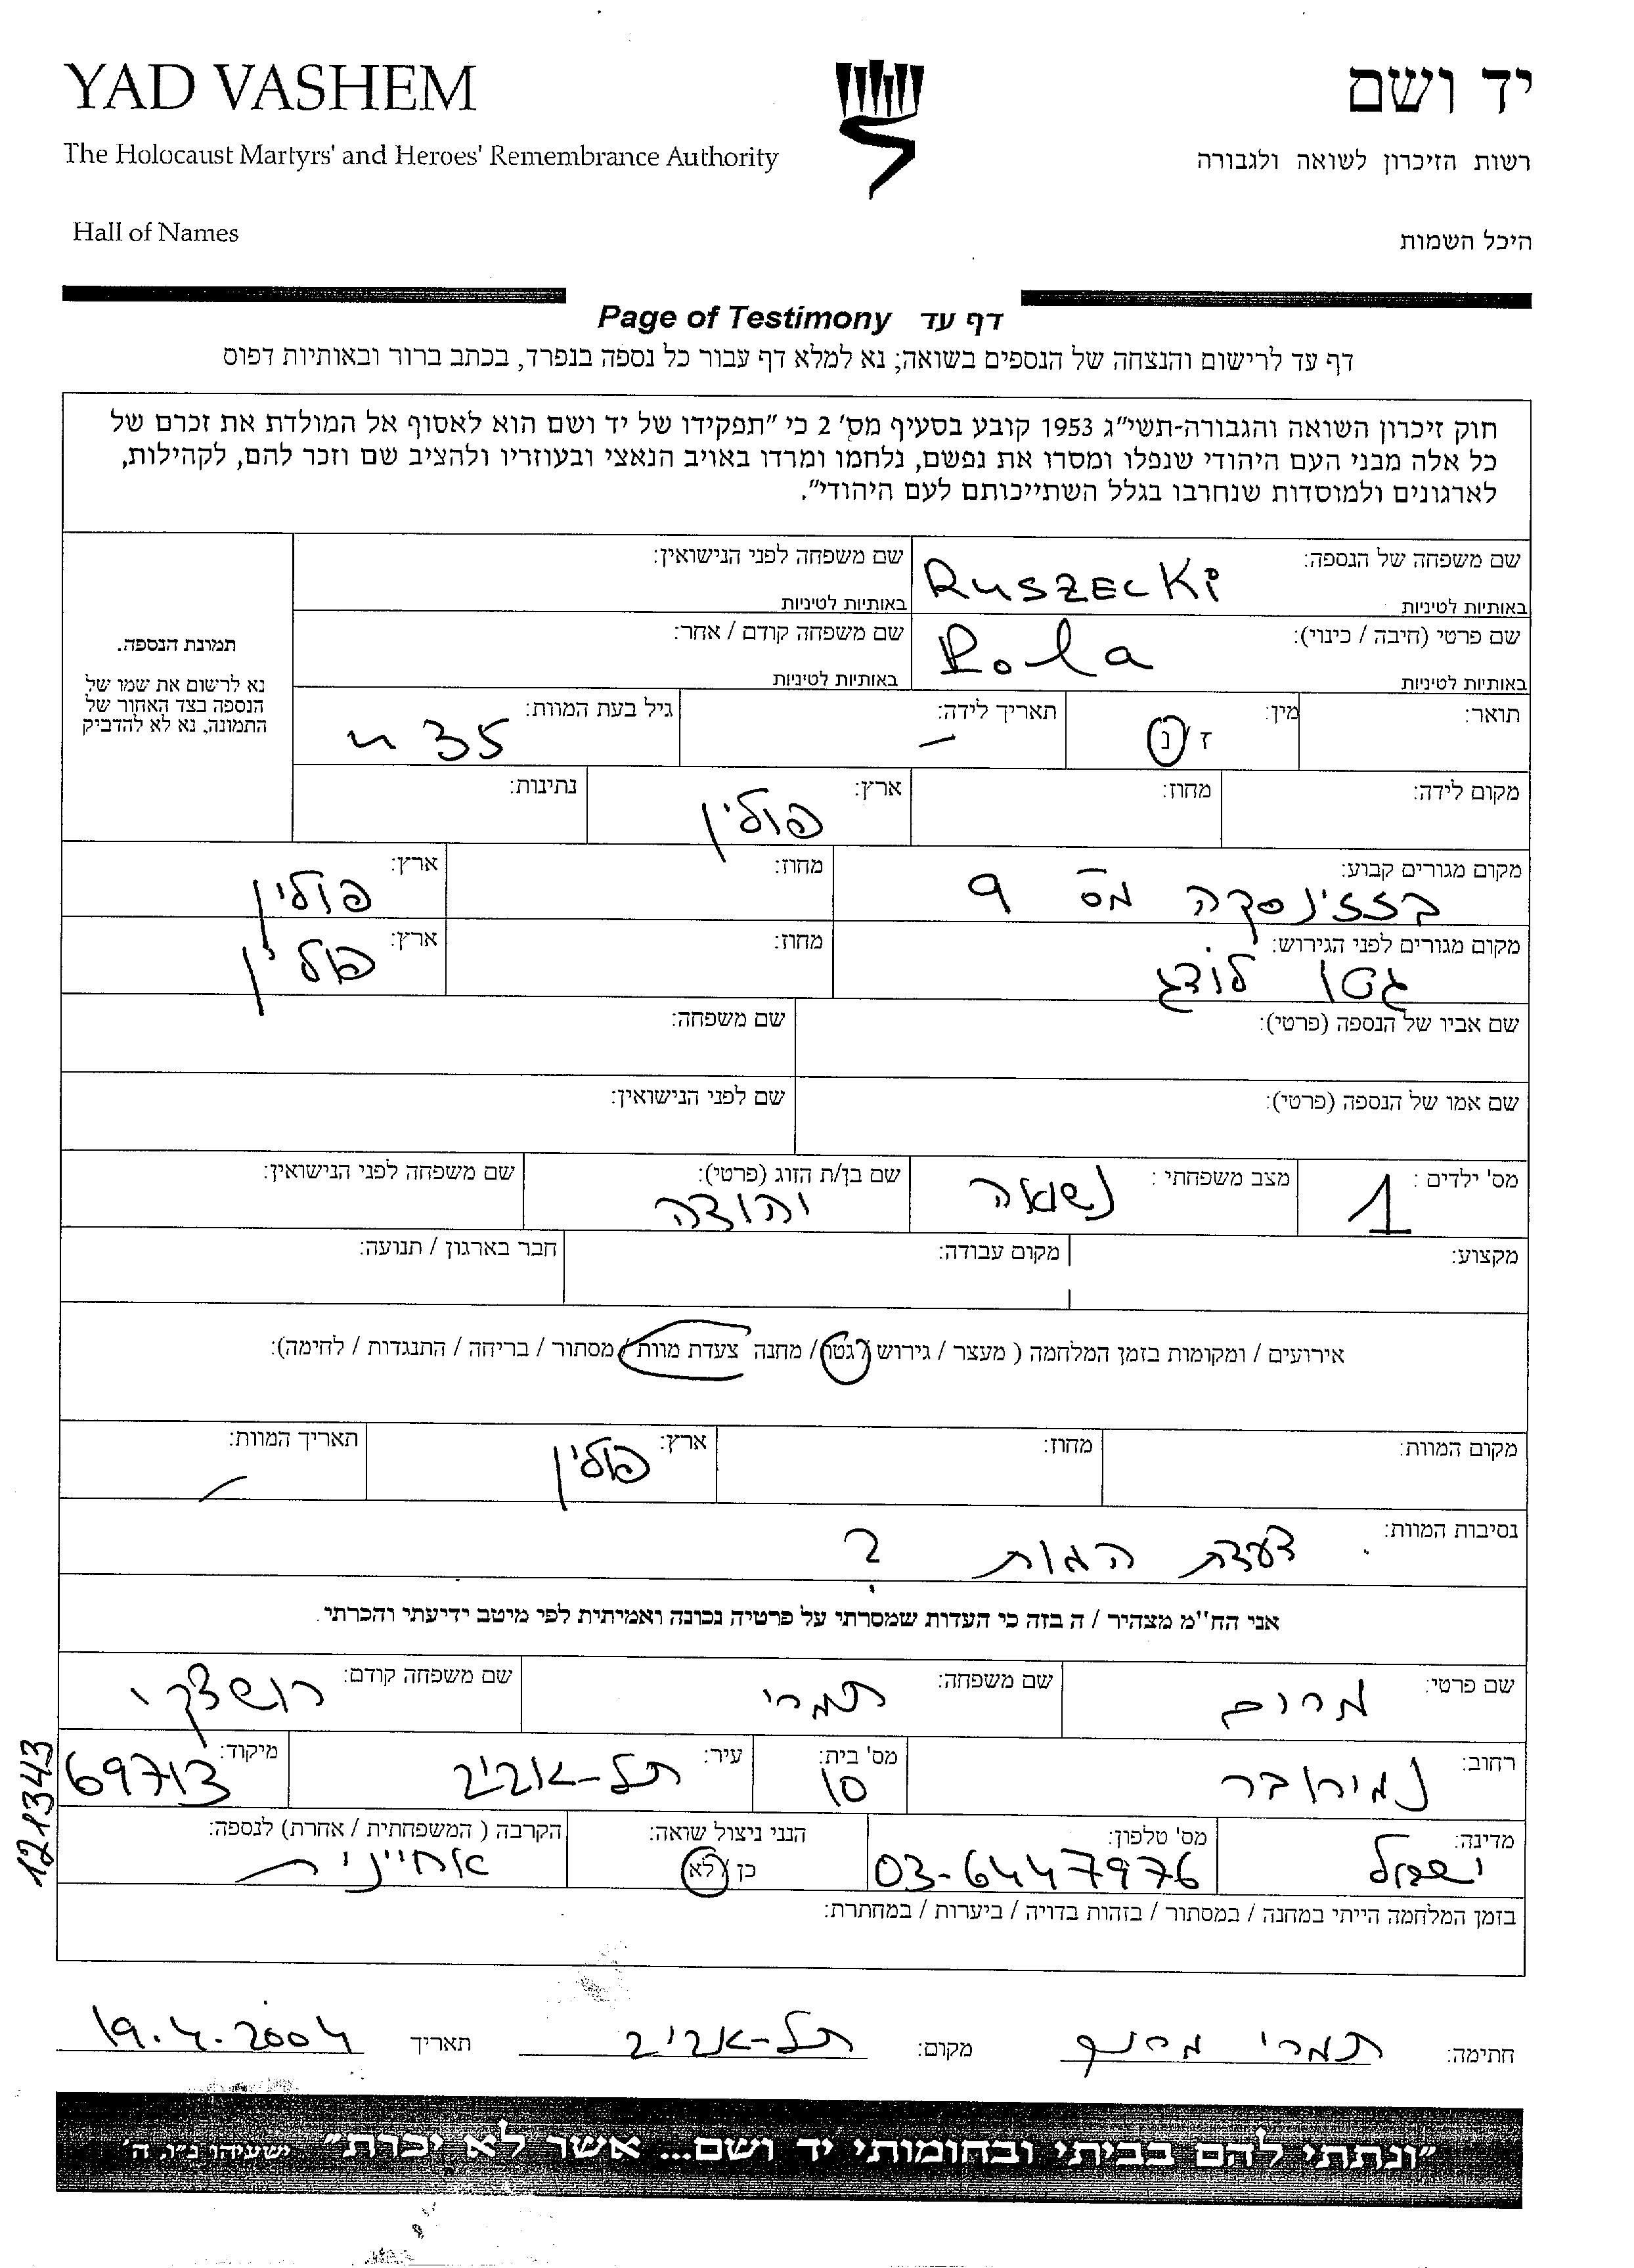 YAD VASHEM
יד ושם
The Holocaust Martyrs' and Heroes' Remembrance Authority
רשות הזיכרון לשואה ולגבורה
Hall of Names
היכל השמות
Page of Testimony דף עד
דף עד לרישום והנצחה של הנספים בשואה; נא למלא דף עבור כל נספה בנפרד, בכתב ברור ובאותיות דפוס
חוק זיכרון השואה והגבורה-תשי"ג 1953 קובע בסעיף מס' 2 כי "תפקידו של יד ושם הוא לאסוף אל המולדת את זכרם של
כל אלה מבני העם היהודי שנפלו ומסרו את נפשם, נלחמו ומרדו באויב הנאצי ובעוזריו ולהציב שם וזכר להם, לקהילות,
לארגונים ולמוסדות שנחרבו בגלל השתייכותם לעם היהודי".
שם משפחה של הנספה: RUSZECKi שם משפחה לפני הנישואין:
באותיות לטיניות באותיות לטיניות
שם פרטי (חיבה / כינוי): Rola שם משפחה קודם / אחר:
באותיות לטיניות באותיות לטיניות
תמונת הנספה.
נא לרשום את שמו של
הנספה בצד האחור של
התמונה, נא לא להדביק
תואר: מין: ז / נ תאריך לידה: – גיל בעת המוות: 35
מקום לידה: מחוז: ארץ: פולין נתינות:
מקום מגורים קבוע: בזז'ינסקה מס 9 מחוז: ארץ: פולין
מקום מגורים לפני הגירוש: גטו לודג' מחוז: ארץ: פולין
שם אביו של הנספה (פרטי): שם משפחה:
שם אמו של הנספה (פרטי): שם לפני הנישואין:
מס' ילדים: 1 מצב משפחתי: נשואה שם בן/ת הזוג (פרטי): יהודה שם משפחה לפני הנישואין:
מקצוע: מקום עבודה: חבר בארגון / תנועה:
אירועים / ומקומות בזמן המלחמה ( מעצר / גירוש / גטו / מחנה צעדת מוות / מסתור / בריחה / התנגדות / לחימה):
מקום המוות: מחוז: ארץ: פולין תאריך המוות: –
נסיבות המוות: צעדת המות ?
אני הח"מ מצהיר / ה בזה כי העדות שמסרתי על פרטיה נכונה ואמיתית לפי מיטב ידיעתי והכרתי.
שם פרטי: מרים שם משפחה: תמרי שם משפחה קודם: רושצקי
רחוב: נמירובר מס' בית: 10 עיר: תל-אביב מיקוד: 69713
מדינה: ישראל מס' טלפון: 03-6447976 הנני ניצול שואה: כן / לא הקרבה ( המשפחתית / אחרת) לנספה: אחיינית
בזמן המלחמה הייתי במחנה / במסתור / בזהות בדויה / ביערות / במחתרת:
121343
חתימה: תמרי מרים מקום: תל-אביב תאריך 19.4.2004
"ונתתי להם בביתי ובחומותי יד ושם... אשר לא יכרת" ישעיהו נ"ו, ה'